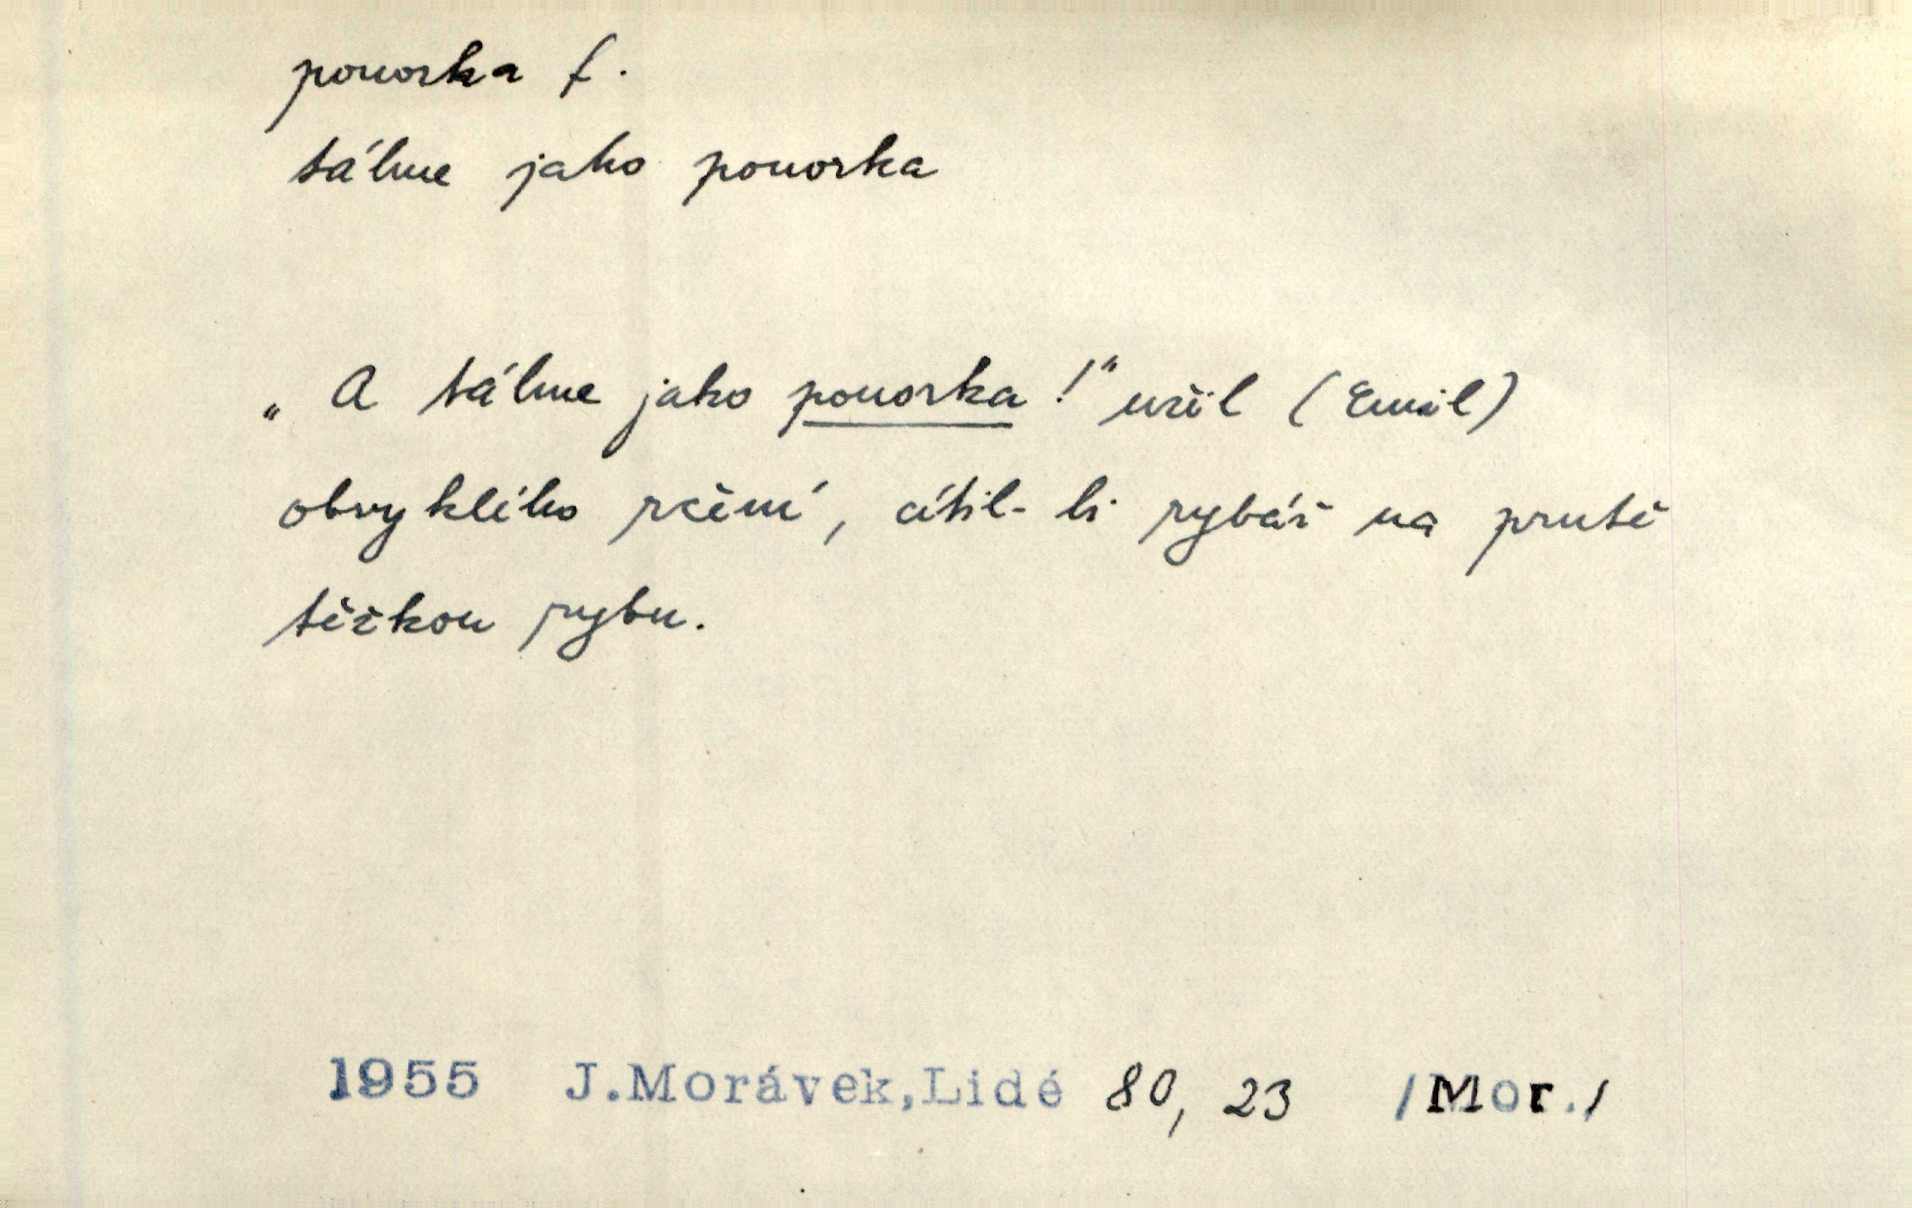 ponorka f.
táhne jako ponorka
„A táhne jako ponorka!“ užil (Emil)
obvyklého rčení, cítil-li rybář na prutě
těžkou rybu.
1955 J.Morávek,Lidé 80, 23 /Mor./